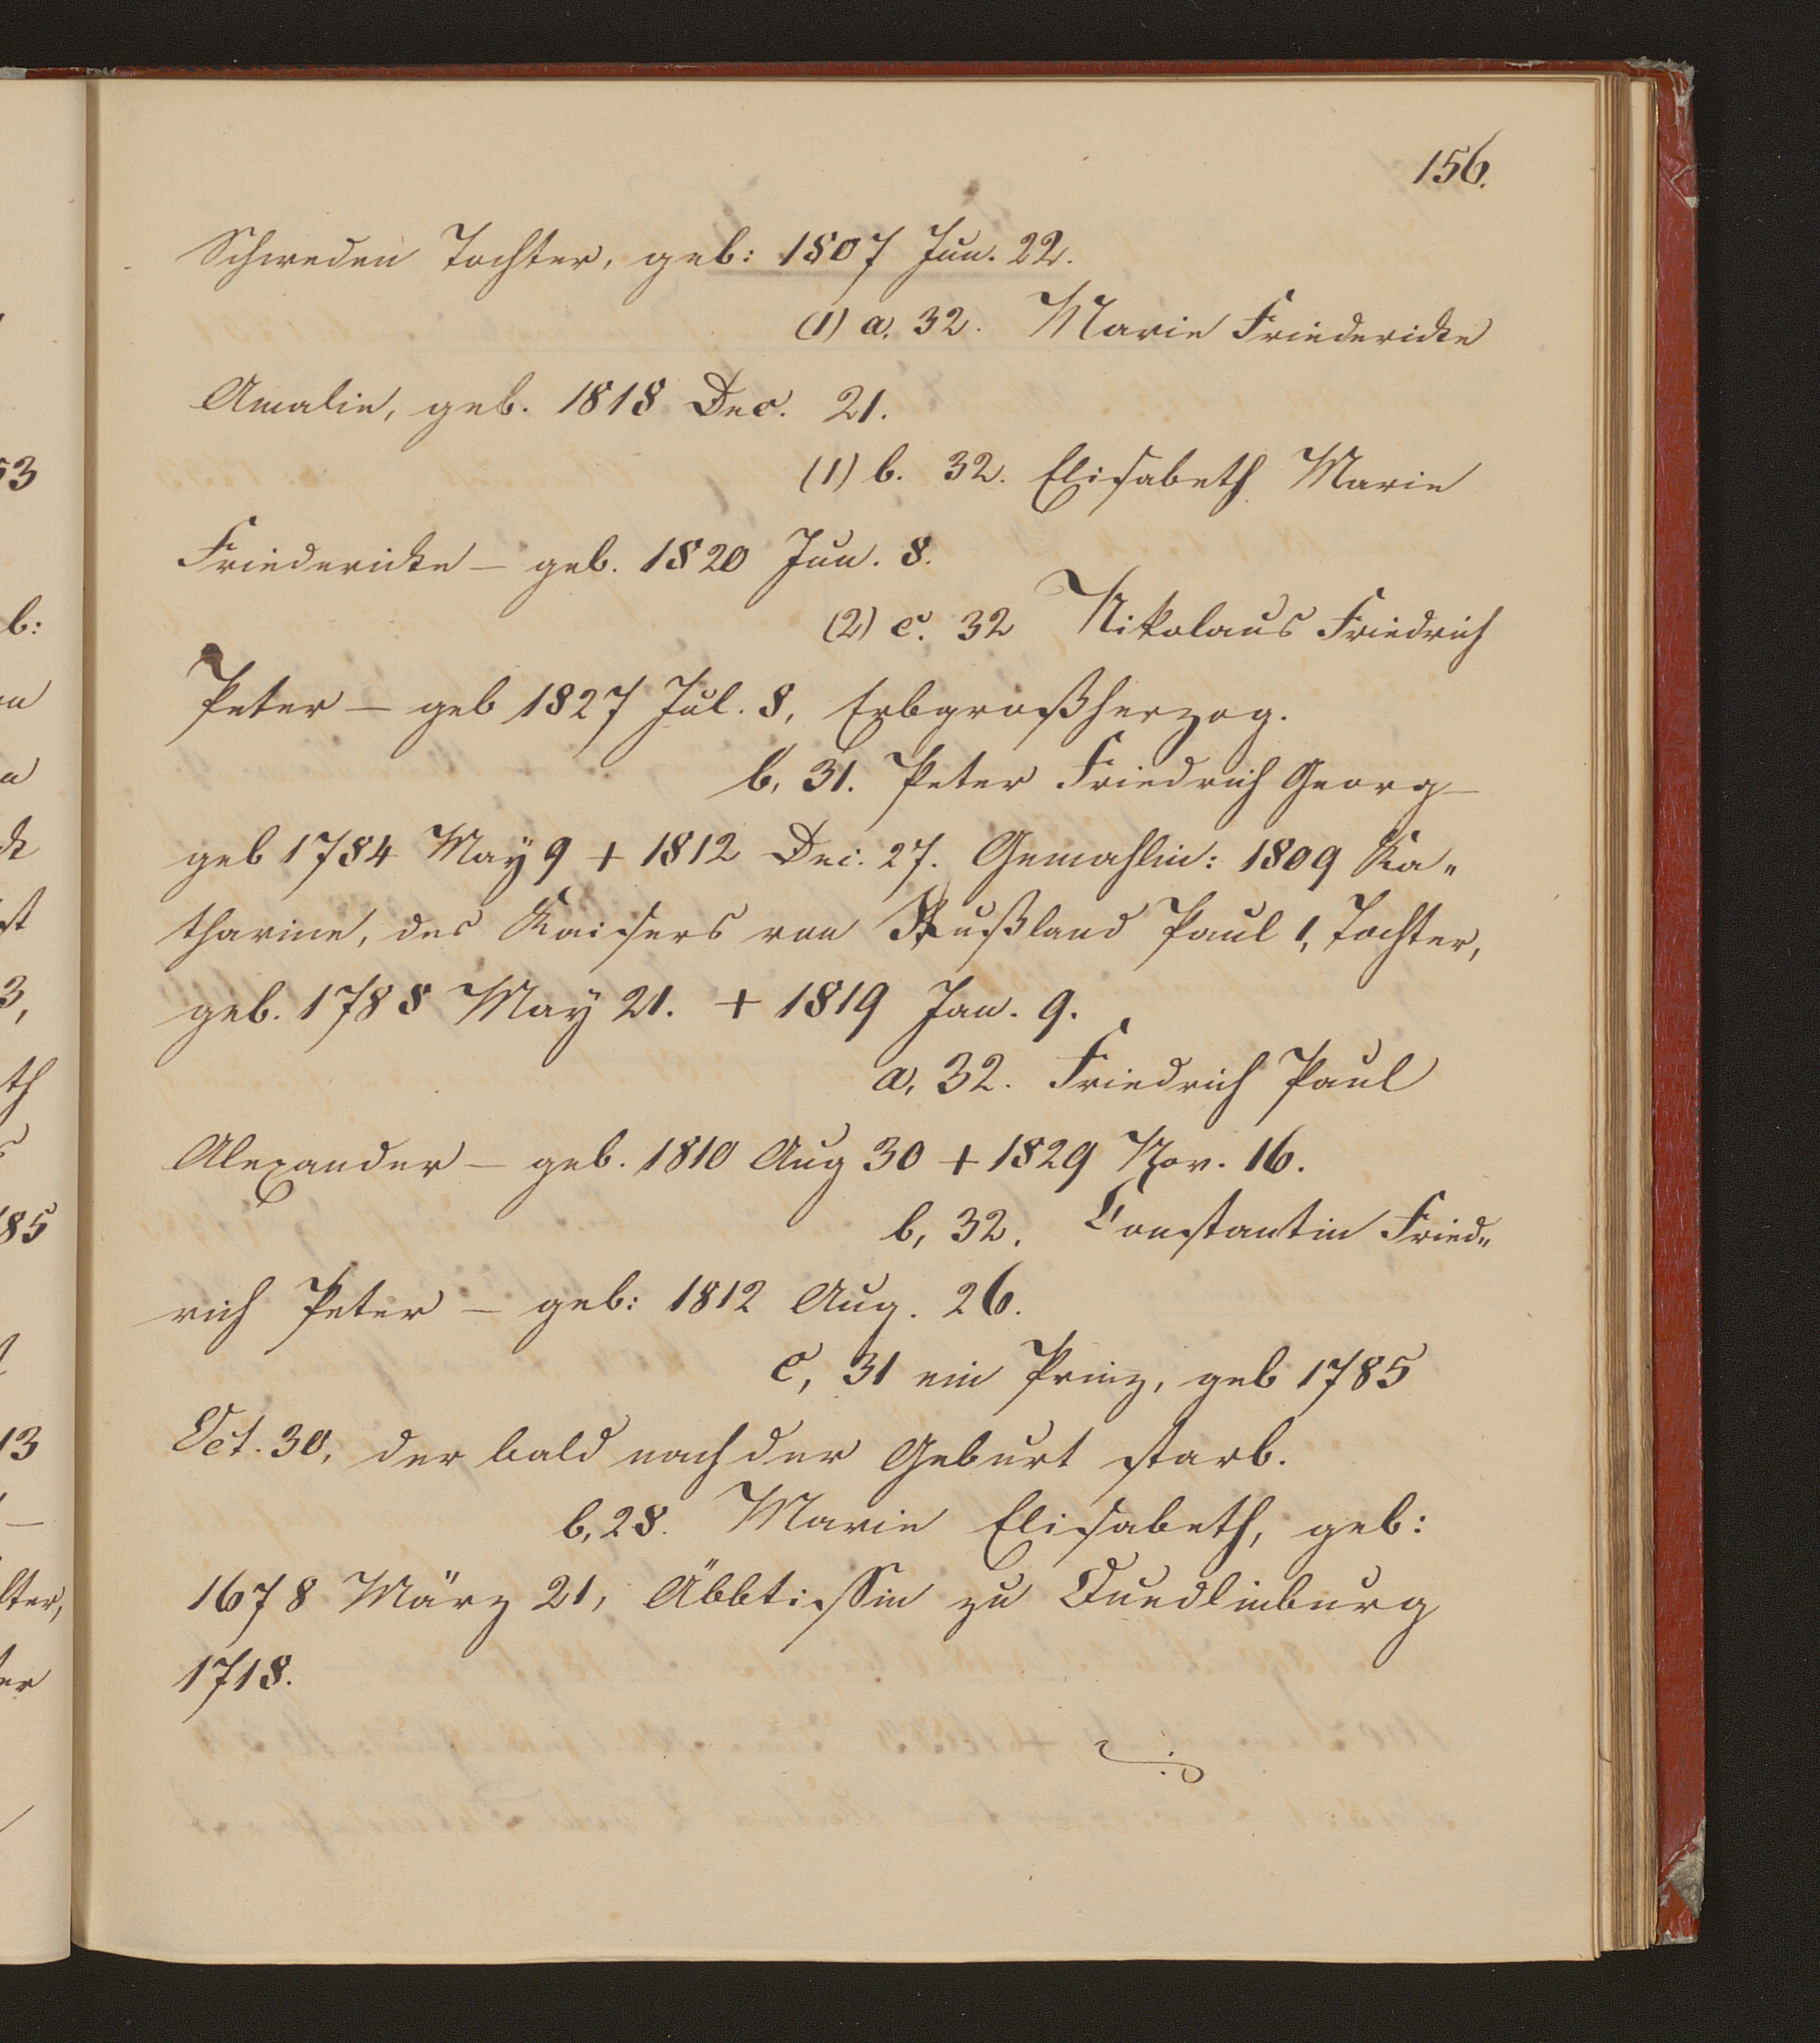 156.
Schweden Tochter, geb: 1807 Jun. 22.
(1) a. 32. Marie Friedericke
Amalie, geb. 1818 Dec. 21.
(1) b. 32. Elisabeth Marie
Friedericke — geb. 1820 Jun. 8.
(2) c. 32 Nikolaus Friedrich
Peter — geb 1827 Jul. 8, Erbgroßherzog.
b, 31. Peter Friedrich Georg —
geb 1784 May 9 + 1812 Dec. 27. Gemahlin: 1809 Ka„
tharine, des Kaisers von Rußland Paul 1, Tochter,
geb. 1788 May 21. + 1819 Jan. 9.
a, 32. Friedrich Paul
Alexander — geb. 1810 Aug 30 + 1829 Nov. 16.
b, 32. Constantin Fried„
rich Peter — geb: 1812 Aug. 26.
c, 31 ein Prinz, geb 1785
Oct. 30, der bald nach der Geburt starb.
b, 28. Marie Elisabeth, geb:
1678 März 21, Äbbtissin zu Quedlinburg
1718.
53
b:
3,
th
185
13
lter,
er